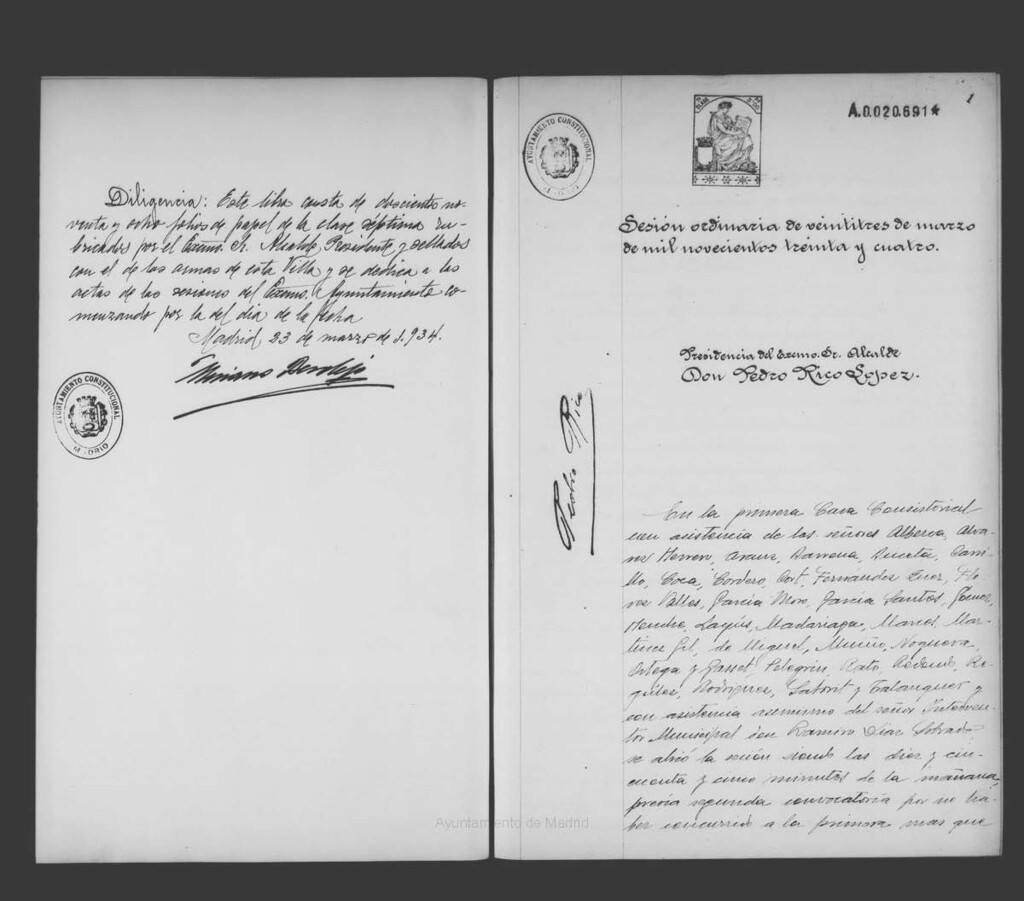 Diligencia: Este libro consta de doscientos no-
venta y ocho folios de papel de la clase séptima ru-
bricados por el Excmo. Sr. Alcalde Presidente y sellados
con el de las armas de esta Villa y se dedica a las
actas de las sesiones del Excmo. Ayuntamiento co-
menzando por la del dia de la fecha
Madrid 23 de marzo de 1.934.
AYUNTAMIENTO CONSTITUCIONAL
MADRID
AYUNTAMIENTO CONSTITUCIONAL
MADRID
Pedro Rico
1
A.0.020.691*
Sesión ordinaria de veintitres de marzo
de mil novecientos treinta y cuatro.
Presidencia del Excmo. Sr. Alcalde
Don Pedro Rico Lopez.
En la primera Casa Consistorial
con asistencia de los señores Alberca, Alva-
rez Herrero, Arauz, Barrena, Buceta, Carri-
llo, Coca, Cordero, Cort, Fernández Quer, Flo-
res Valles, García Moro, García Santos, Gómez,
Henche, Layús, Madariaga, Marcos, Mar-
tínez Gil, de Miguel, Muiño, Noguera,
Ortega y Gasset, Pelegrín, Rato, Redondo, Re-
gúlez, Rodríguez, Saborit y Talanquer y
con asistencia asimismo del señor Interven-
tor Municipal don Ramiro Díaz Sobrado
se abrió la sesión siendo las diez y cin-
cuenta y cinco minutos de la mañana,
previa segunda convocatoria por no ha-
ber concurrido a la primera mas que
Ayuntamiento de Madrid